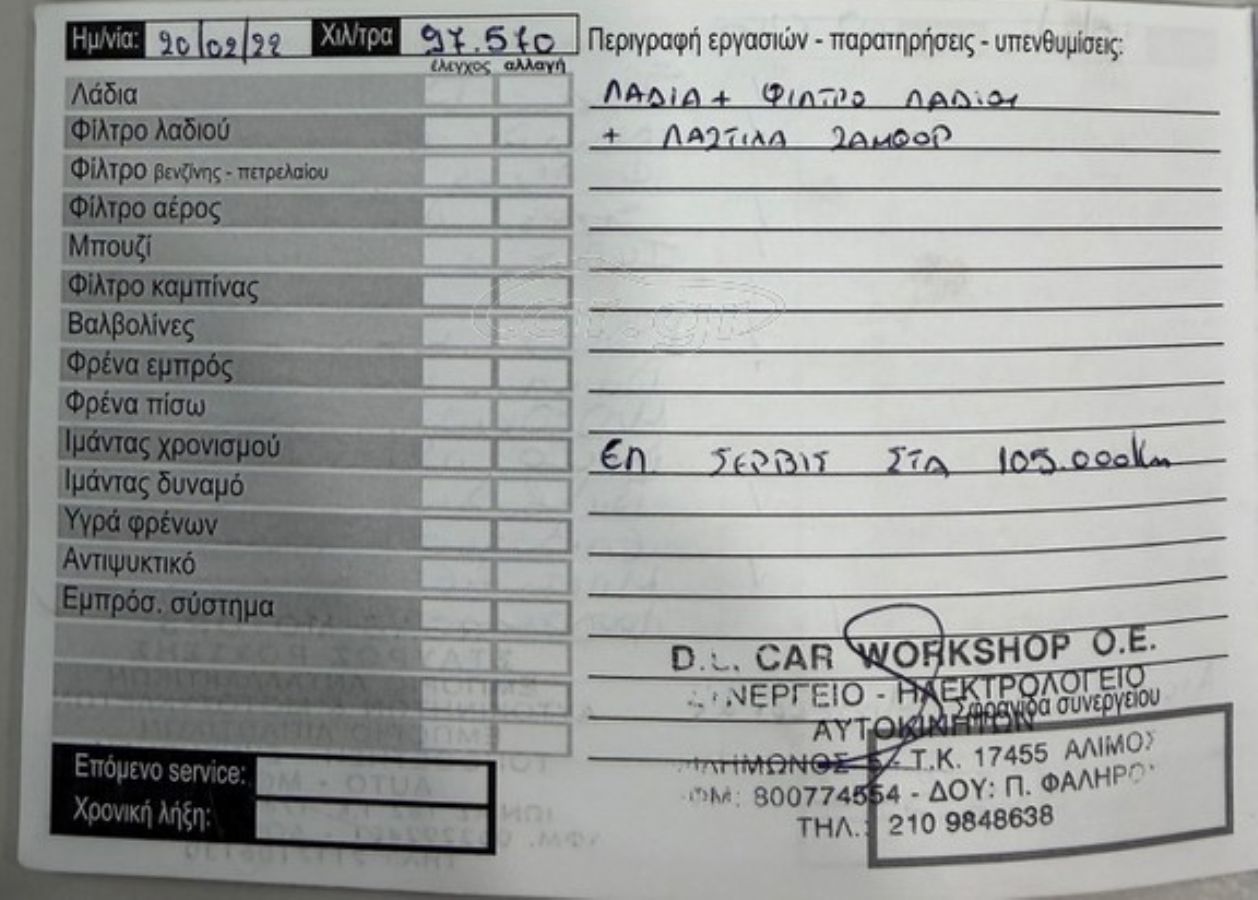 Ημ/νία: 20/02/22 Χιλ/τρα 97.570
έλεγχος αλλαγή
Περιγραφή εργασιών - παρατηρήσεις - υπενθυμίσεις:
Λάδια
Φίλτρο λαδιού
Φίλτρο βενζίνης - πετρελαίου
Φίλτρο αέρος
Μπουζί
Φίλτρο καμπίνας
Βαλβολίνες
Φρένα εμπρός
Φρένα πίσω
Ιμάντας χρονισμού
Ιμάντας δυναμό
Υγρά φρένων
Αντιψυκτικό
Εμπρόσ. σύστημα
Επόμενο service:
Χρονική λήξη:
ΛΑΔΙΑ + ΦΙΛΤΡΟ ΛΑΔΙΟΥ
+ ΛΑΣΤΙΧΑ ΣΑΜΦΟΡ
ΕΠ ΣΕΡΒΙΣ ΣΤΑ 105.000km
D.L. CAR WORKSHOP O.E.
ΣΥΝΕΡΓΕΙΟ - ΗΛΕΚΤΡΟΛΟΓΕΙΟ
Σφραγίδα συνεργείου
ΑΥΤΟΚΙΝΗΤΩΝ
Τ.Κ. 17455 ΑΛΙΜΟΣ
800774554 - ΔΟΥ: Π. ΦΑΛΗΡΟΥ
ΤΗΛ.: 210 9848638
car.gr